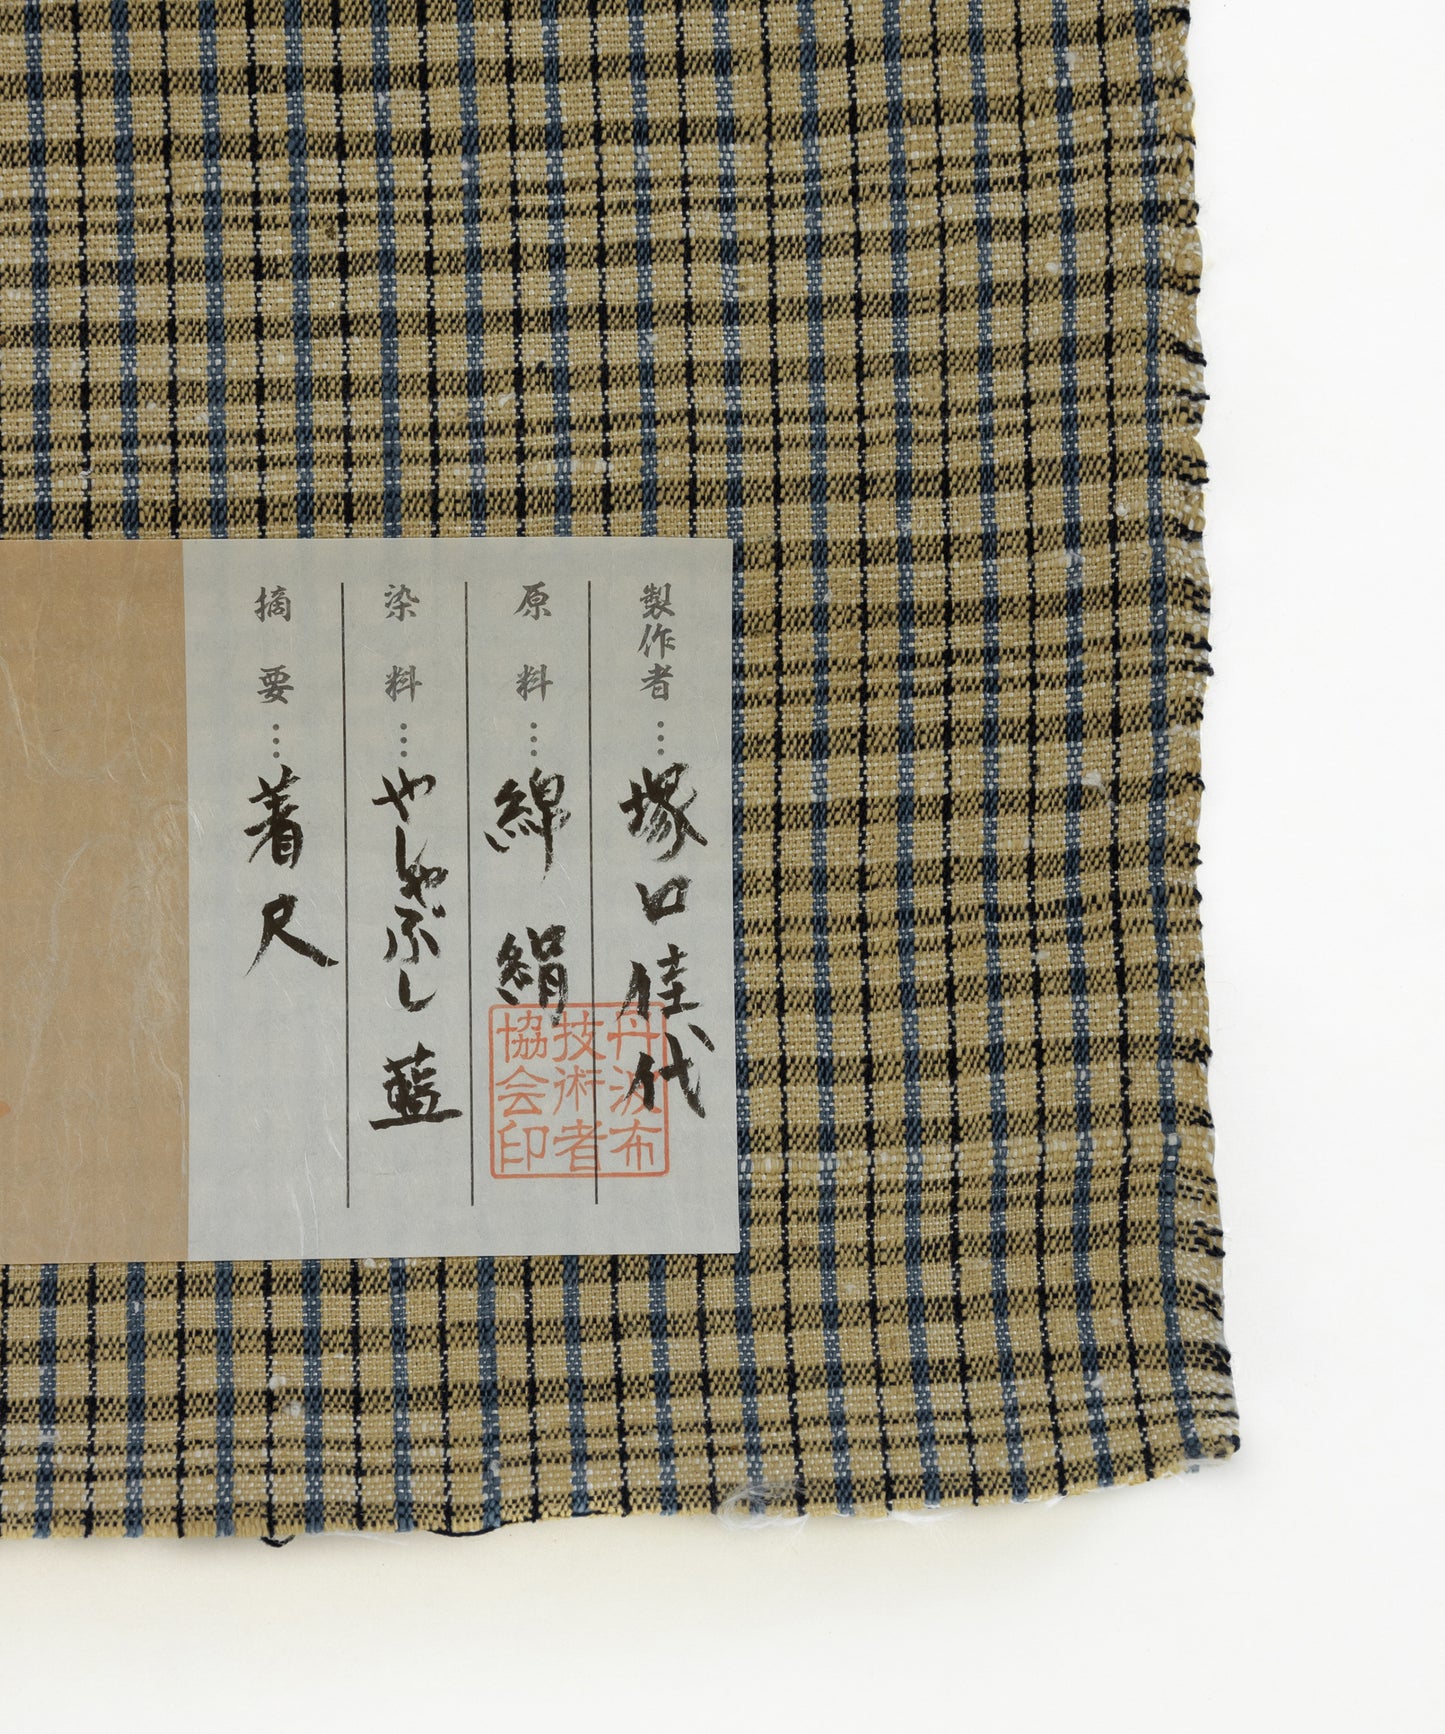 製作者…塚口佳代
原料…綿 絹
染料…やしゃぶし 藍
摘要…着尺
丹波布
技術者
協会印